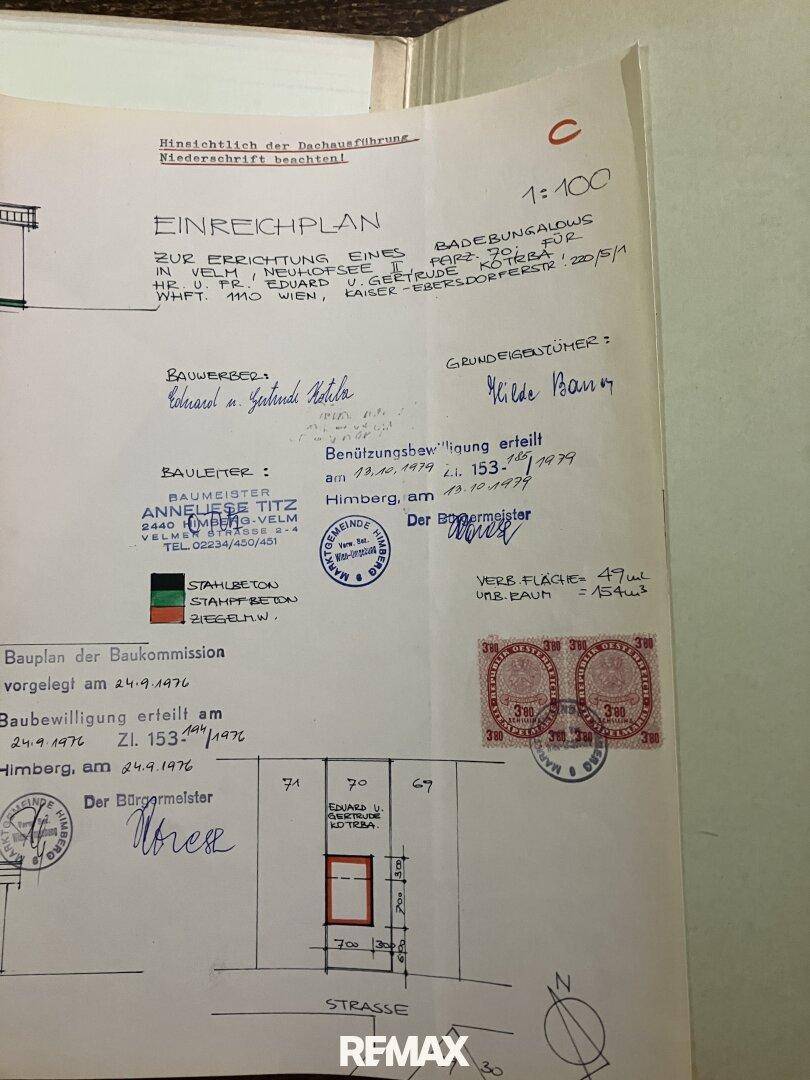 Hinsichtlich der Dachausführung
Niederschrift beachten!
C
1:100
EINREICHPLAN
ZUR ERRICHTUNG EINES BADEBUNGALOWS
IN VELM, NEUHOFSEE II PARZ. 70, FÜR
HR. U. FR. EDUARD U. GERTRUDE KOTRBA
WHFT. 1110 WIEN, KAISER-EBERSDORFERSTR. 220/5/1
BAUWERBER:
Eduard u. Gertrude Kotrba
GRUNDEIGENTÜMER:
Hilde
Benützungsbewilligung erteilt
am 13.10.1979 Zl. 153-185/1979
Himberg, am 13.10.1979
Der Bürgermeister
MARKTGEMEINDE HIMBERG
Verw. Bez.
Wien-Umgebung
BAULEITER:
BAUMEISTER
ANNELIESE TITZ
2440 HIMBERG-VELM
VELMER STRASSE 2-4
TEL. 02234/450/451
STAHLBETON
STAMPFBETON
ZIEGELM.W.
VERB. FLÄCHE = 49 m2
UMB. RAUM = 154 m3
Bauplan der Baukommission
vorgelegt am 24.9.1976
Baubewilligung erteilt am
24.9.1976 Zl. 153-194/1976
Himberg, am 24.9.1976
Der Bürgermeister
MARKTGEMEINDE HIMBERG
Verw. Bez.
Wien-Umgebung
3'80 3'80 3'80 3'80
REPUBLIK OESTERREICH REPUBLIK OESTERREICH
3'80 3'80
SCHILLING SCHILLING
STEMPELMARKE STEMPELMARKE
3'80 3'80 3'80 3'80
71 70 69
EDUARD U.
GERTRUDE
KOTRBA.
300
700
700 300
600
STRASSE
N
30
RE/MAX